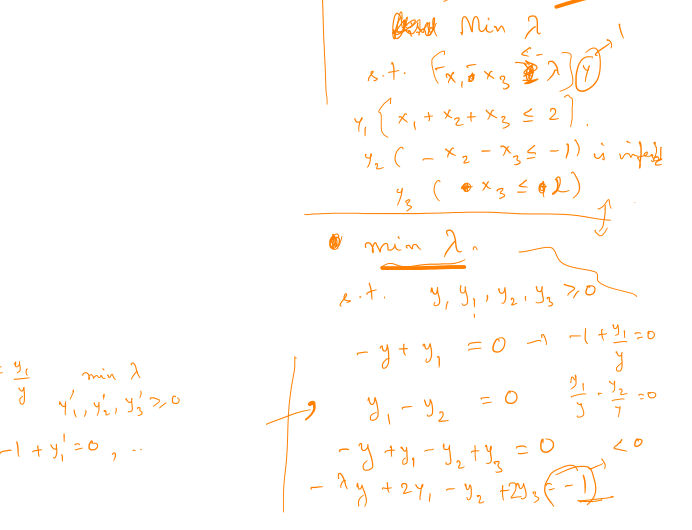 Min λ
s.t. (-x₁ - x₃ ≤ -λ) y → 1
y₁ { x₁ + x₂ + x₃ ≤ 2 } .
y₂ ( - x₂ - x₃ ≤ -1 ) is
y₃ ( x₃ ≤ 2 )
min λ .
s.t. y, y₁, y₂, y₃ ≥ 0
-y + y₁ = 0 → -1 + y₁/y = 0
y₁ - y₂ = 0 y₁/y - y₂/y = 0
-y + y₁ - y₂ + y₃ = 0 < 0
-λy + 2y₁ - y₂ + 2y₃ = -1
= y₁/y min λ
y₁', y₂', y₃' ≥ 0
-1 + y₁' = 0 , ..